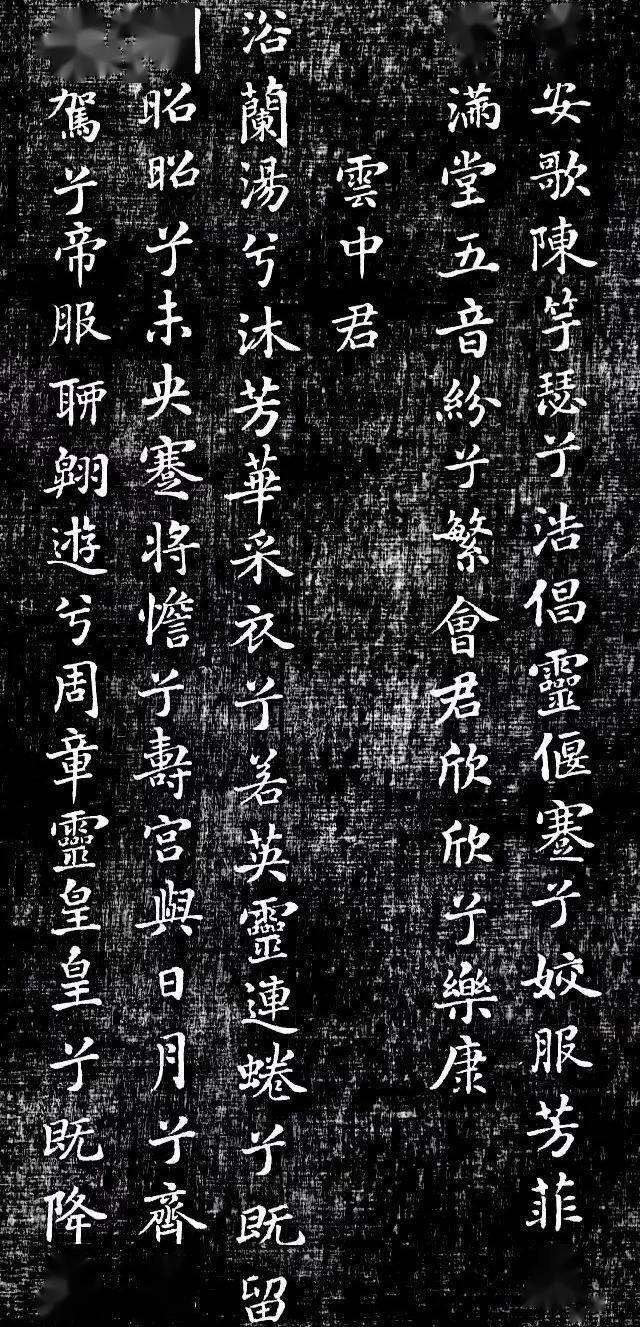 安歌陳竽瑟兮浩倡靈偃蹇兮姣服芳菲
滿堂五音紛兮繁會君欣欣兮樂康
雲中君
浴蘭湯兮沐芳華采衣兮若英靈連蜷兮既留
昭昭兮未央蹇將憺兮壽宮與日月兮齊
駕兮帝服聊翱遊兮周章靈皇皇兮既降